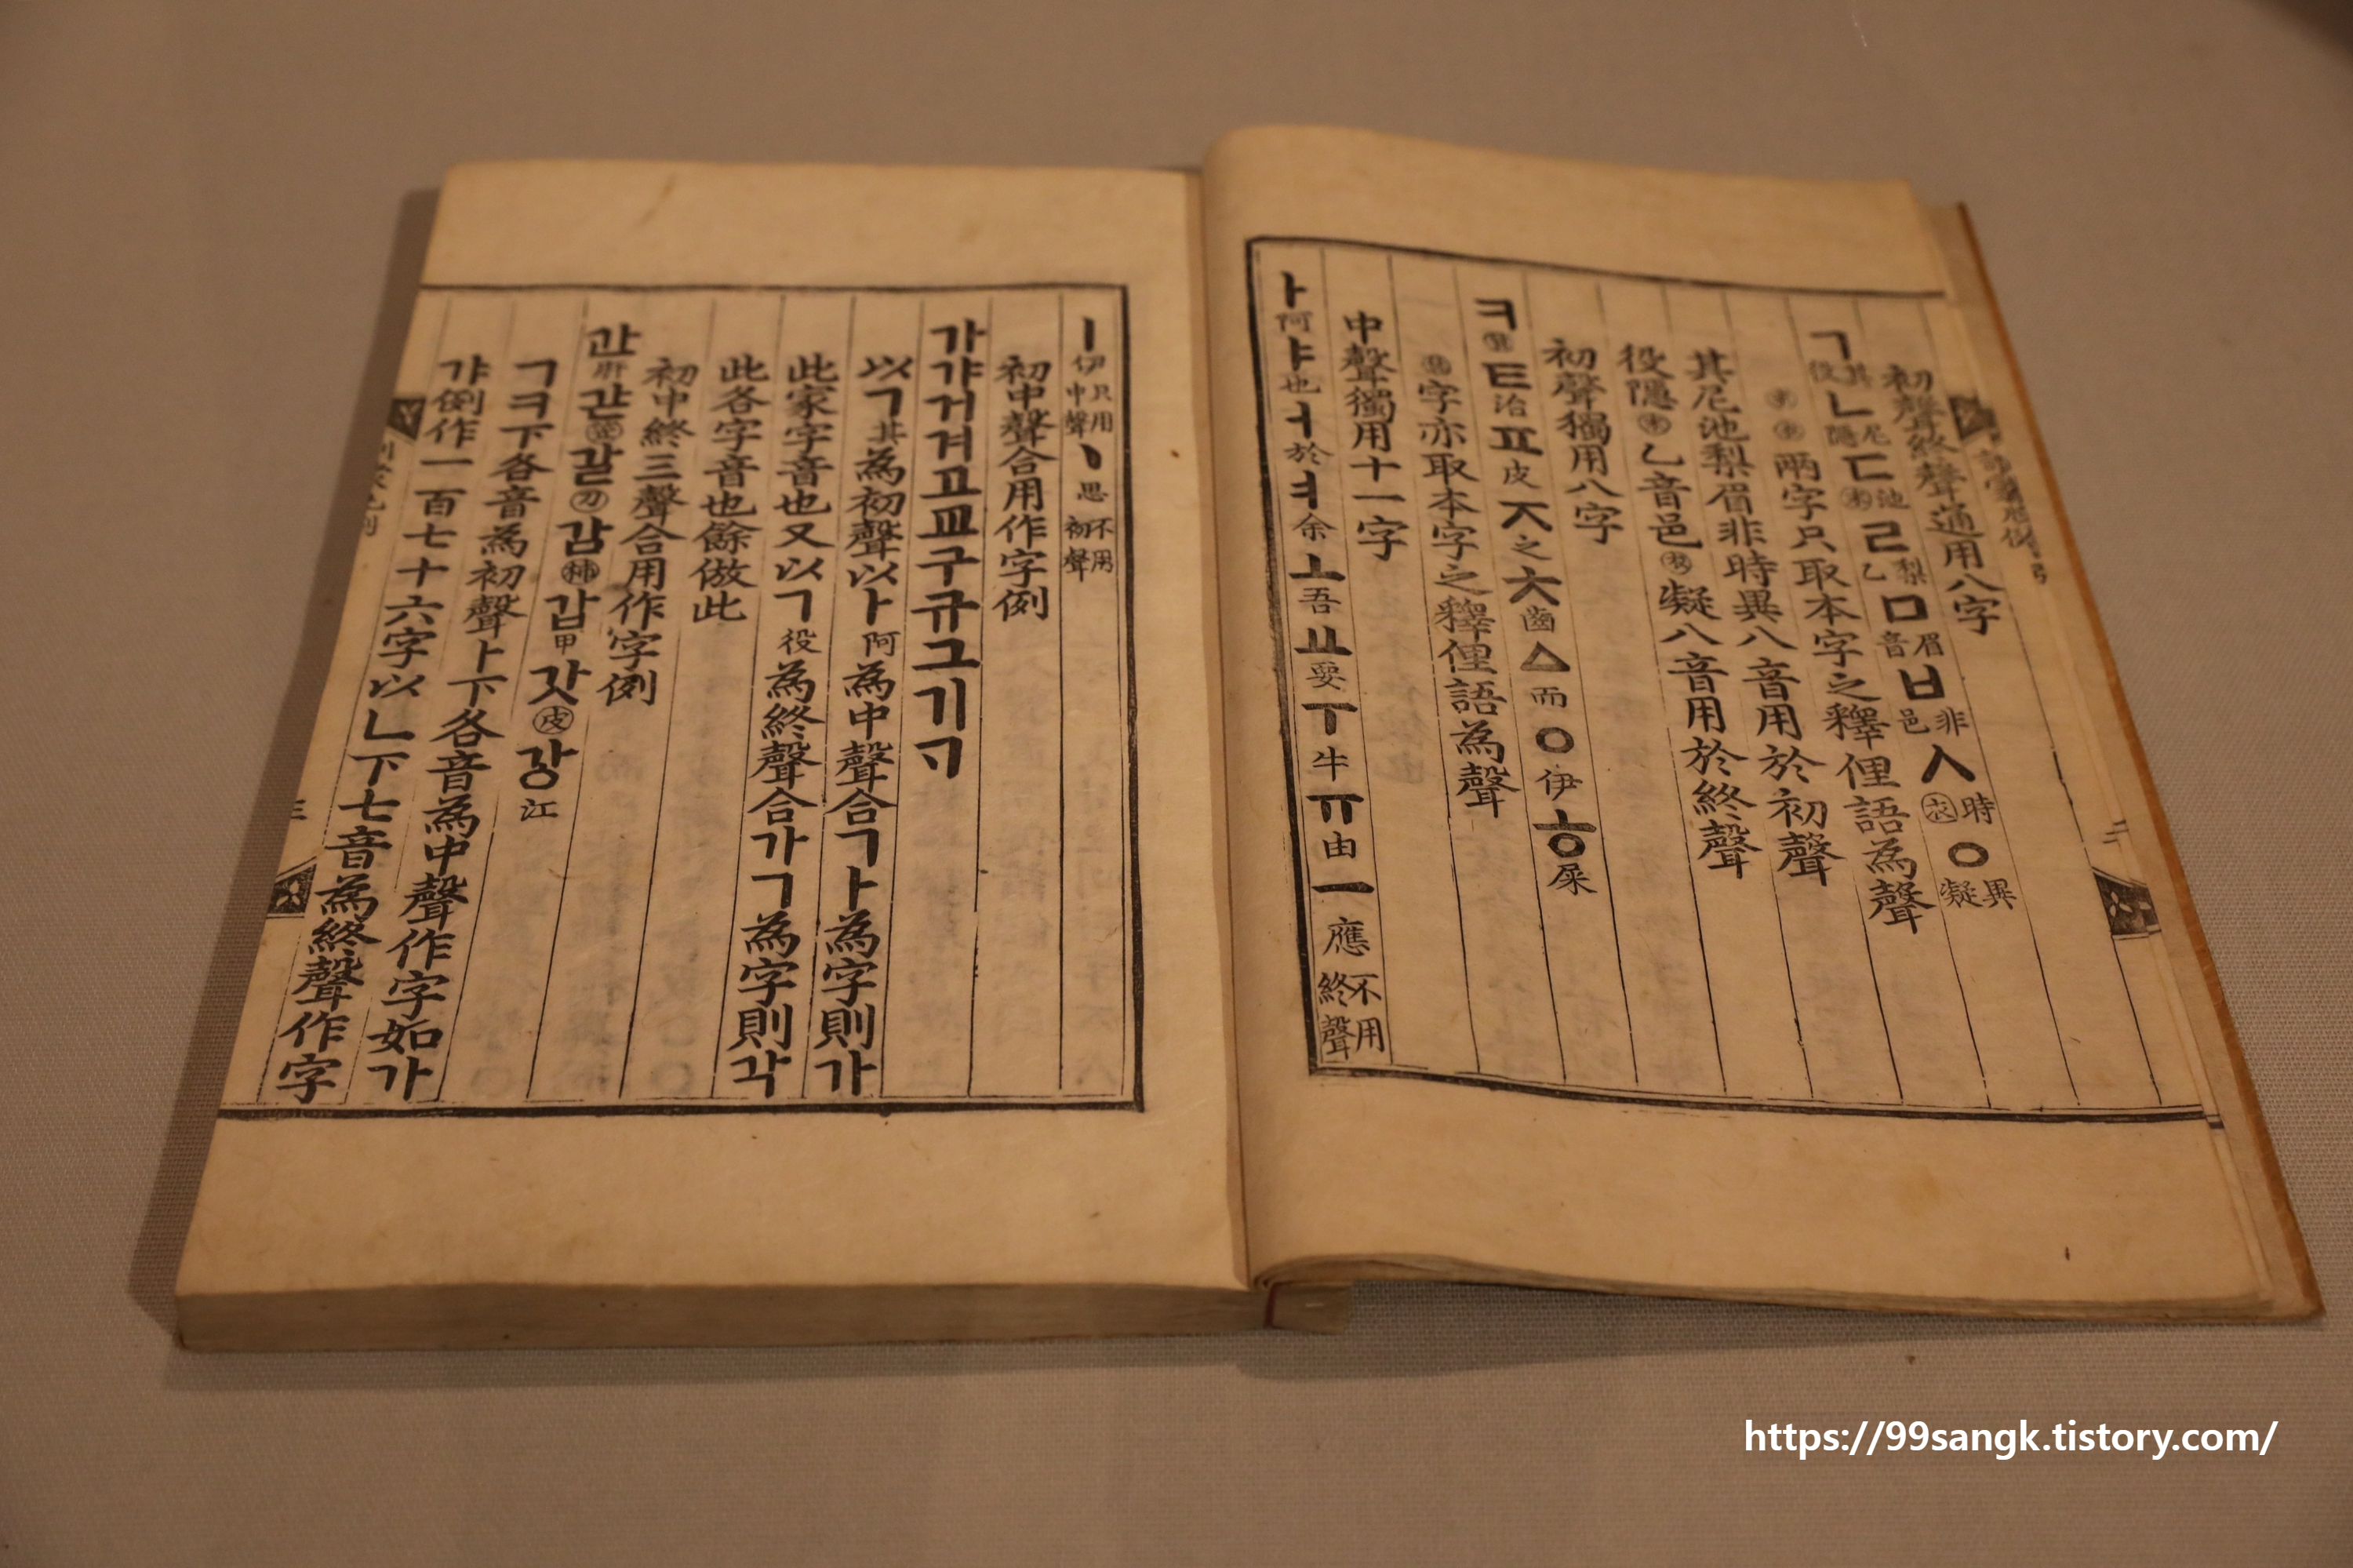 初聲終聲通用八字
ㄱ其役ㄴ尼隱ㄷ池末ㄹ梨乙ㅁ眉音ㅂ非邑ㅅ時衣ㆁ異凝
末衣兩字只取本字之釋俚語為聲
其尼池梨眉非時異八音用於初聲
役隱末乙音邑衣凝八音用於終聲
初聲獨用八字
ㅋ箕ㅌ治ㅍ皮ㅈ之ㅊ齒ㅿ而ㅇ伊ㅎ屎
箕字亦取本字之釋俚語為聲
中聲獨用十一字
ㅏ阿ㅑ也ㅓ於ㅕ余ㅗ吾ㅛ要ㅜ牛ㅠ由ㅡ應不用終聲
ㅣ伊只用中聲ㆍ思不用初聲
初中聲合用作字例
가갸거겨고교구규그기ᄀᆞ
以ㄱ其為初聲以ㅏ阿為中聲合ㄱㅏ為字則가
此家字音也又以ㄱ役為終聲合가ㄱ為字則각
此各字音也餘倣此
初中終三聲合用作字例
간肝갇笠갈刀감柿갑甲갓皮강江
ㄱㅋ下各音為初聲ㅏ下各音為中聲作字如가
갸例作一百七十六字以ㄴ下七音為終聲作字
https://99sangk.tistory.com/